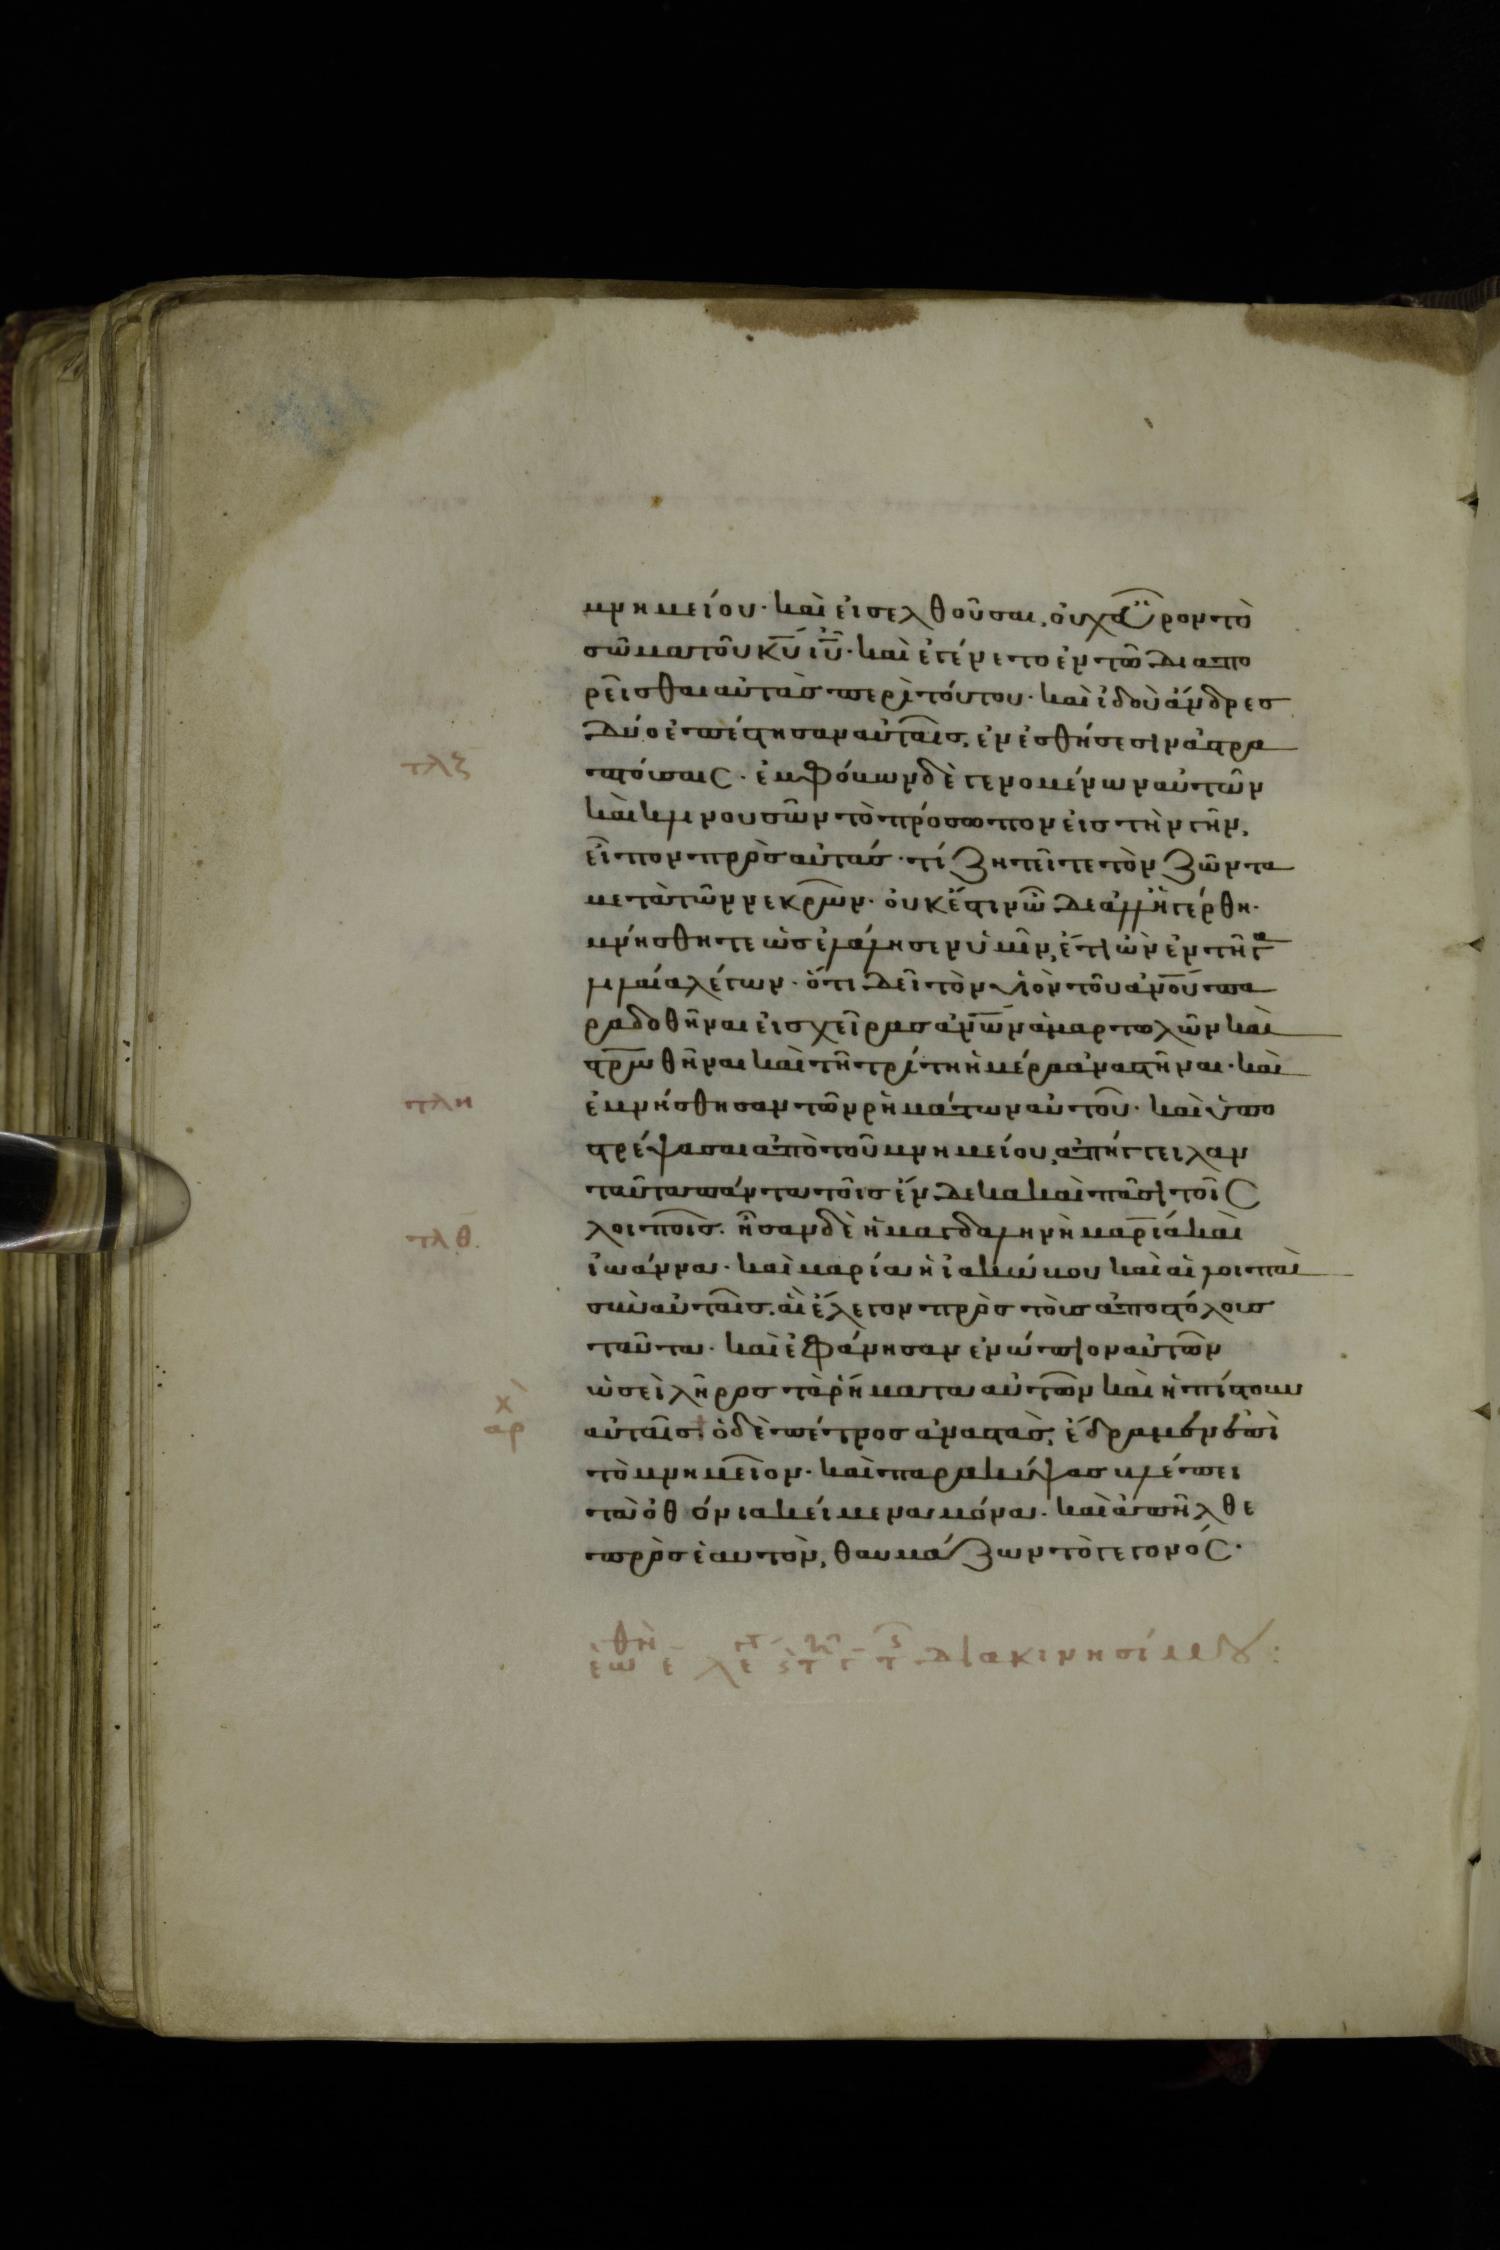 μνημείου· καὶ εἰσελθοῦσαι, οὐχ εὗρον τὸ
σῶμα τοῦ κ̅υ̅ ι̅υ̅· καὶ ἐγένετο ἐν τῶ διαπο
ρεῖσθαι αὐτὰς περὶ τούτου· καὶ ἰδοὺ ἄνδρες
δύο ἐπέστησαν αὐταῖς, ἐν ἐσθήσεσιν ἀστρα
τλζ
πτούσαις· ἐμφόβων δὲ γενομένων αὐτῶν
καὶ κλινουσῶν τὸ πρόσωπον εἰς τὴν γῆν,
εἶπον πρὸς αὐτάς· τί ζητεῖτε τὸν ζῶντα
μετὰ τῶν νεκρῶν· οὐκ ἔστιν ὧδε ἀλλ' ἠγέρθη·
μνήσθητε ὡς ἐλάλησεν ὑμῖν, ἔτι ὢν ἐν τῆ γα
λιλαία λέγων· ὅτι δεῖ τὸν υἱὸν τοῦ α̅ν̅ο̅υ̅ πα
ραδοθῆναι εἰς χεῖρας α̅ν̅ω̅ν̅ ἁμαρτωλῶν καὶ
στρωθῆναι καὶ τῆ τρίτη ἡμέρα ἀναστῆναι· καὶ
τλη
ἐμνήσθησαν τῶν ῥημάτων αὐτοῦ· καὶ ὑπο
στρέψασαι ἀπὸ τοῦ μνημείου, ἀπήγγειλαν
ταῦτα πάντα τοῖς ἕνδεκα καὶ πᾶσι τοῖς
τλθ
λοιποῖς. ἦσαν δὲ ἡ μαγδαληνὴ μαρία καὶ
ἰωάννα· καὶ μαρία ἡ ἰακώβου καὶ αἱ λοιπαὶ
σὺν αὐταῖς. αἳ ἔλεγον πρὸς τοὺς ἀποστόλους
ταῦτα· καὶ ἐφάνησαν ἐνώπιον αὐτῶν
ὡσεὶ λῆρος τὰ ῥήματα αὐτῶν καὶ ἠπίστουν
αρχ
αὐταῖς· ὁ δὲ πέτρος ἀναστὰς, ἔδραμεν ἐπὶ
τὸ μνημεῖον· καὶ παρακύψας βλέπει
τὰ ὀθόνια κείμενα μόνα· καὶ ἀπῆλθε
πρὸς ἑαυτὸν, θαυμάζων τὸ γεγονός·
διακινησίμου: